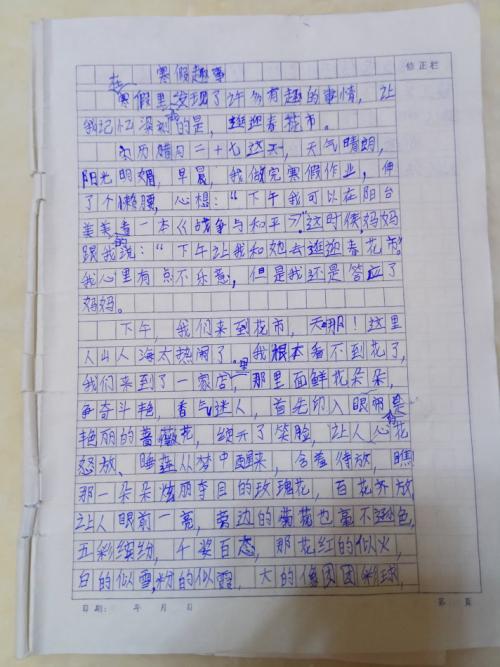 修正栏
寒假趣事
在寒假里发现了许多有趣的事情，让
我记忆深刻的是，逛迎春花市。
农历腊月二十七这天，天气晴朗，
阳光明媚，早晨，我做完寒假作业，伸
了个懒腰，心想：“下午我可以在阳台
美美的看一本《战争与和平》”。这时候，妈妈
跟我说：“下午让我和她去逛迎春花市。”
我心里有点不乐意，但是我还是答应了
妈妈。
下午，我们来到花市，天哪！这里
人山人海太热闹了，我根本看不到花了，
我们来到了一家店，那里面鲜花朵朵，
争奇斗艳，香气迷人，首先印入眼帘的是
艳丽的蔷薇花，绽开了笑脸，让人心花
怒放、睡莲从梦中醒来，含着待放，瞧
那一朵朵炫丽夺目的玫瑰花，百花齐放
让人眼前一亮，旁边的菊花也毫不逊色，
五彩缤纷，千姿百态，那花红的似火，
白的似雪，粉的似霞，大的像团团彩球，
日期： 年 月 日 第 页